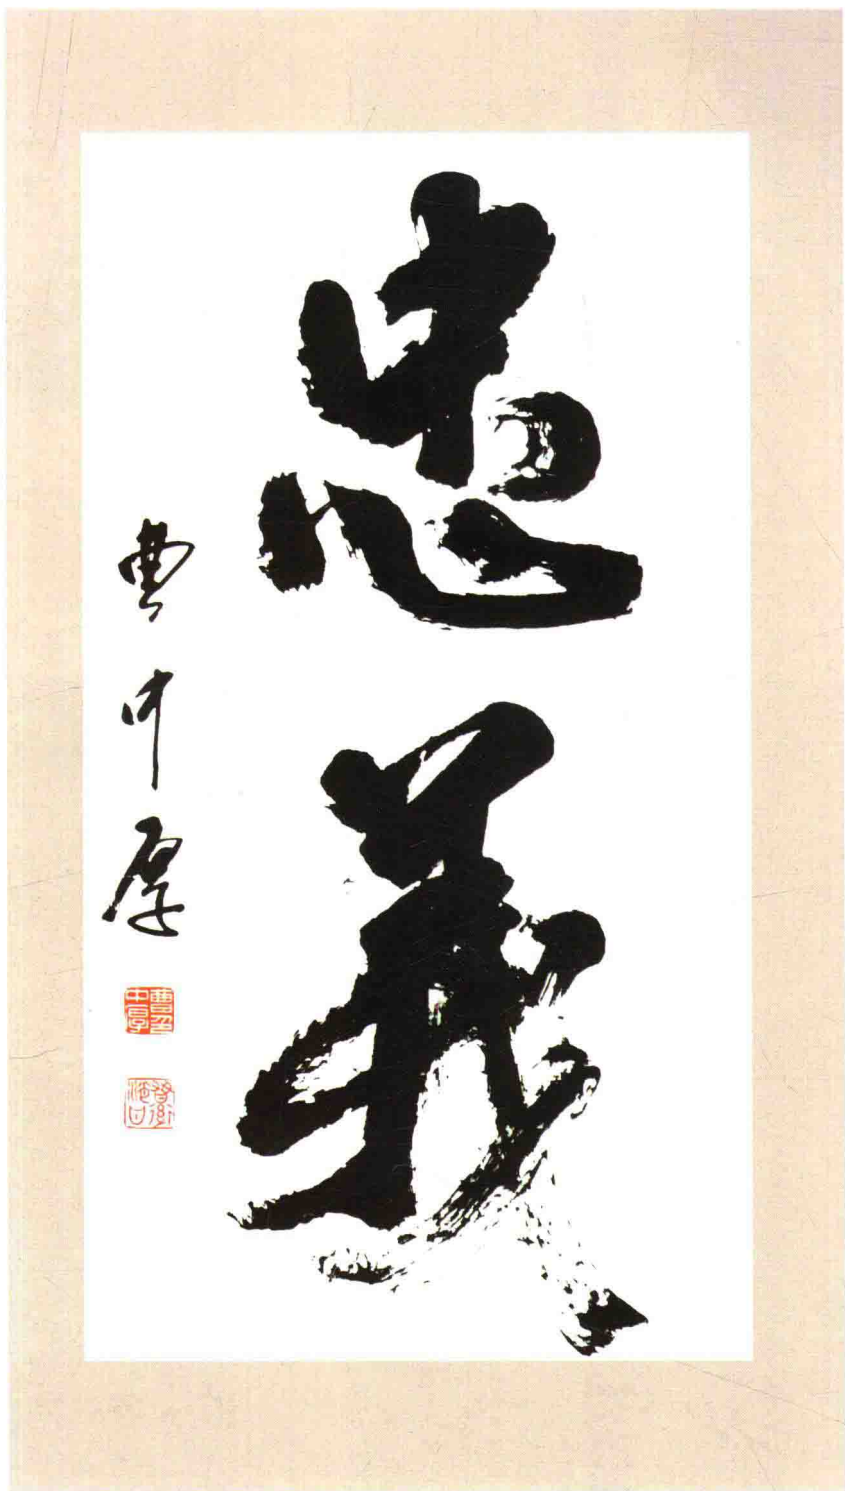 忠義
曹中厚
曹印中厚